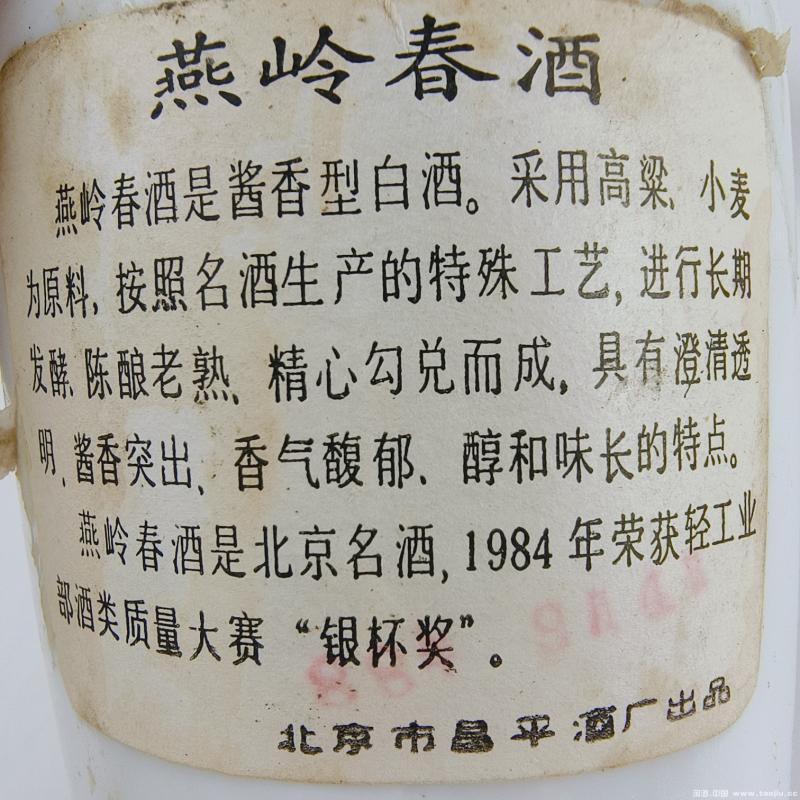 燕岭春酒
燕岭春酒是酱香型白酒。采用高粱、小麦
为原料,按照名酒生产的特殊工艺,进行长期
发酵、陈酿老熟、精心勾兑而成,具有澄清透
明、酱香突出、香气馥郁、醇和味长的特点。
燕岭春酒是北京名酒,1984年荣获轻工业
部酒类质量大赛“银杯奖”。
北京市昌平酒厂出品
www.taojiu.cc